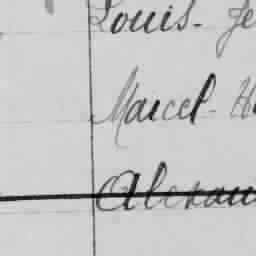 Louis- Je
Marcel- H
Alexan